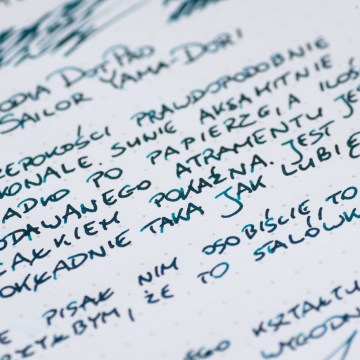 ODIA DOTPAD
SAILOR YAMA-DORI
ZEPOKOŚCI PRAWDOPODOBNIE
KONALE. SUNIE AKSAMITNIE
ADKO PO PAPIERZE, A ILOŚ
ODAWANEGO ATRAMENTU JES
CAŁKIEM POKAŹNA. JEST
OKŁADNIE TAKA JAK LUBIĘ
E PISAŁ NIM OSOBIŚCIE, TO
BYM, ŻE TO STALÓWK
EGO KSZTAŁTU
WYGODN